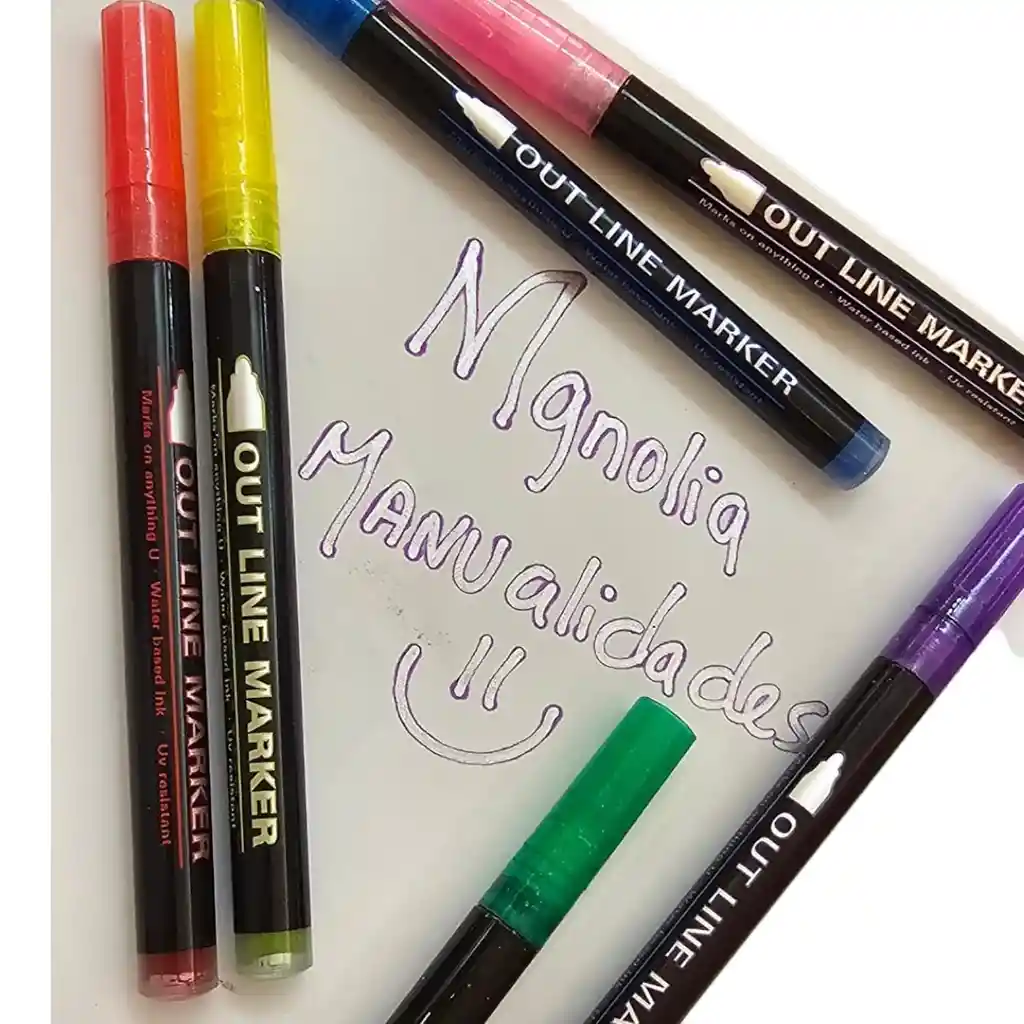 OUT LINE MARKER
Marks on anything U · Water based ink · Uv resistant
OUT LINE MARKER
Marks on anything U · Water based ink · Uv resistant
OUT LINE MARKER
OUT LINE MARKE
Marks on anything U · Water based ink · Uv resistant
Mgnolia
MANUalidades
OUT LINE MA